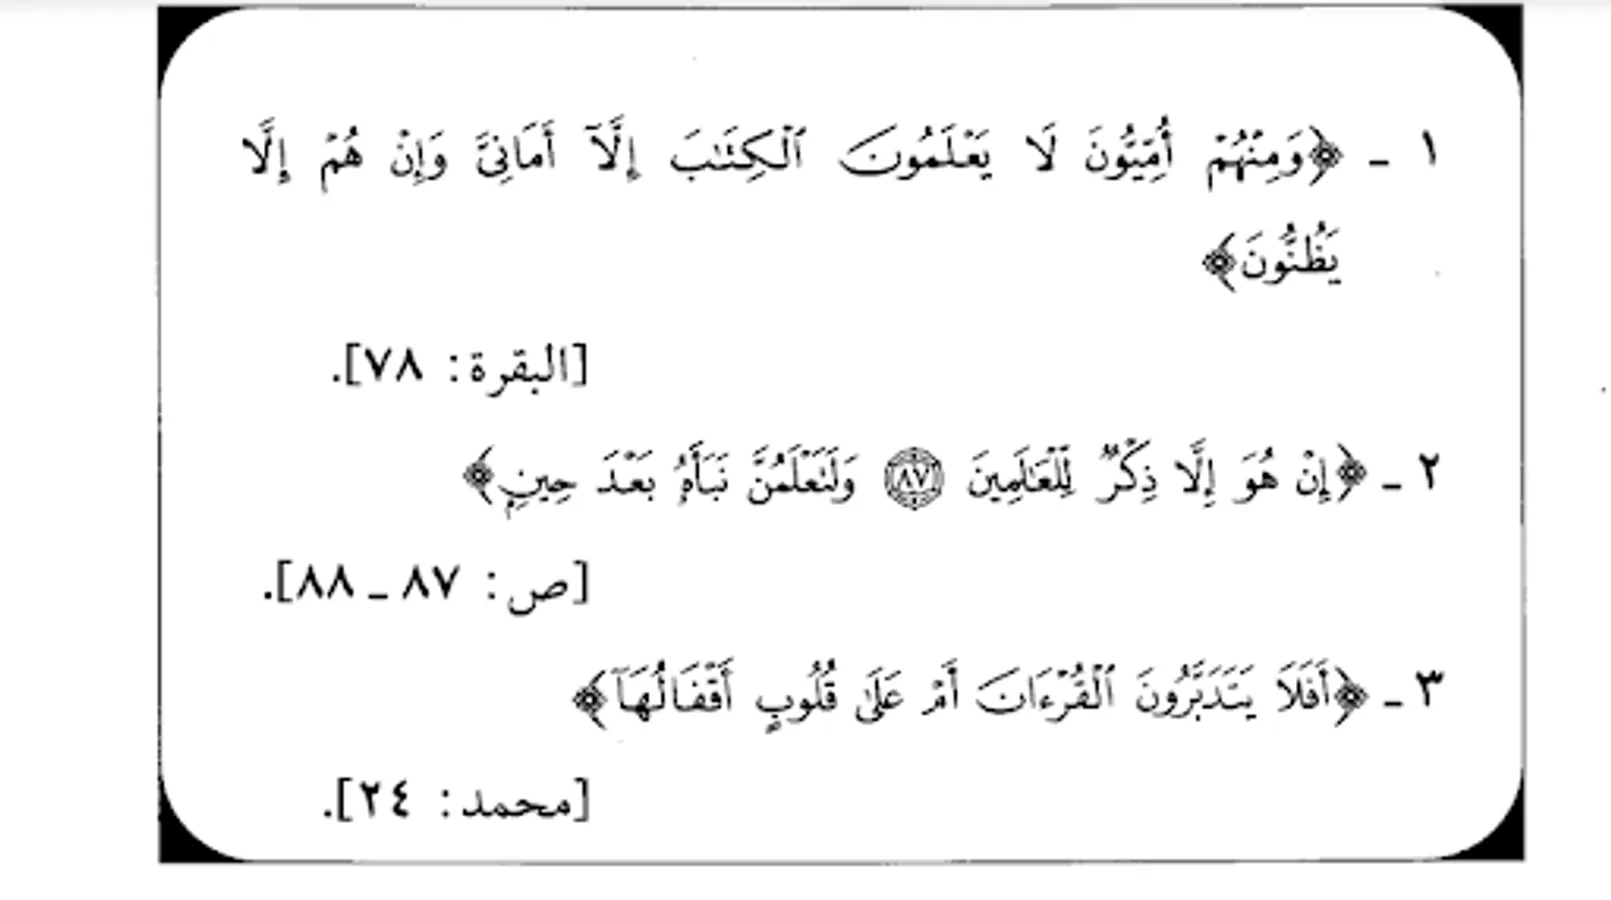 ١ ـ ﴿وَمِنْهُمْ أُمِّيُّونَ لَا يَعْلَمُونَ ٱلْكِتَٰبَ إِلَّآ أَمَانِىَّ وَإِنْ هُمْ إِلَّا
يَظُنُّونَ﴾
[البقرة: ٧٨].
٢ ـ ﴿إِنْ هُوَ إِلَّا ذِكْرٌ لِّلْعَٰلَمِينَ ٨٧ وَلَتَعْلَمُنَّ نَبَأَهُۥ بَعْدَ حِينٍۭ﴾
[ص: ٨٧ ـ ٨٨].
٣ ـ ﴿أَفَلَا يَتَدَبَّرُونَ ٱلْقُرْءَانَ أَمْ عَلَىٰ قُلُوبٍ أَقْفَالُهَآ﴾
[محمد: ٢٤].